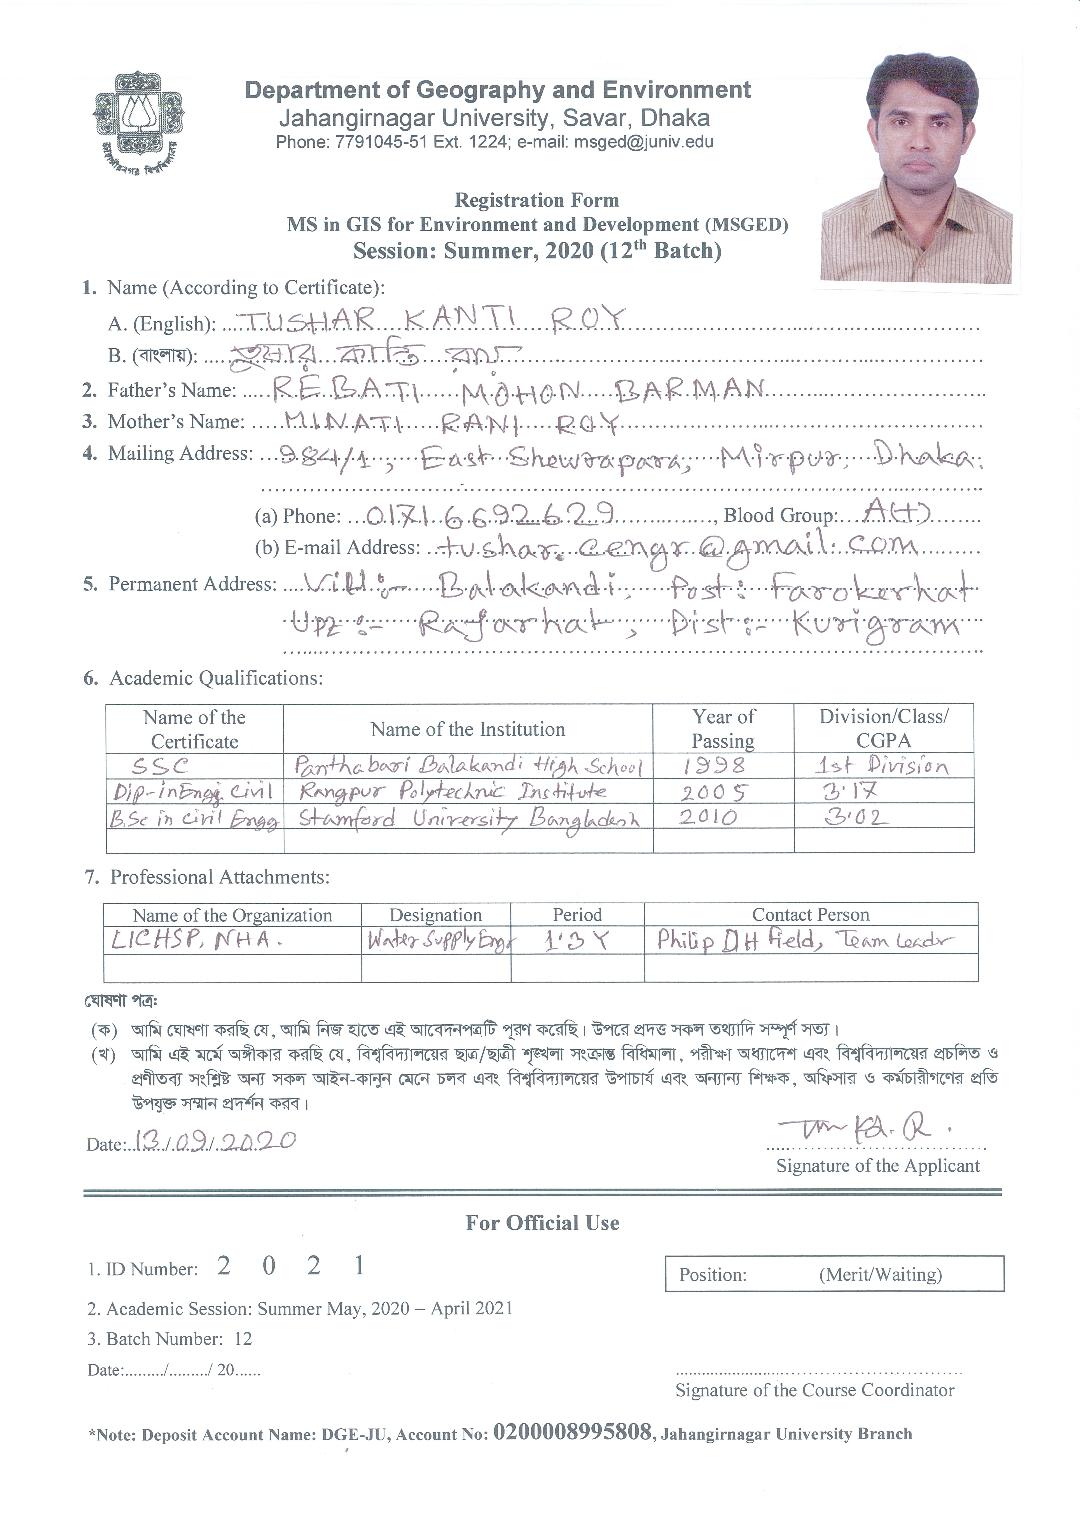 জাহাঙ্গীরনগর বিশ্ববিদ্যালয়
Department of Geography and Environment
Jahangirnagar University, Savar, Dhaka
Phone: 7791045-51 Ext. 1224; e-mail: msged@juniv.edu
Registration Form
MS in GIS for Environment and Development (MSGED)
Session: Summer, 2020 (12th Batch)
1. Name (According to Certificate):
A. (English): TUSHAR KANTI ROY
B. (বাংলায়): তুষার কান্তি রায়
2. Father's Name: REBATI MOHON BARMAN
3. Mother's Name: MINATI RANI ROY
4. Mailing Address: 984/1, East Shewrapara, Mirpur, Dhaka.
(a) Phone: 01716692629, Blood Group: A(+)
(b) E-mail Address: tushar.cengr@gmail.com
5. Permanent Address: Vill:- Balakandi, Post: Farokerhat
Upz:- Rajarhat, Dist:- Kurigram
6. Academic Qualifications:
Name of the Certificate Name of the Institution Year of Passing Division/Class/ CGPA
SSC Panthabari Balakandi High School 1998 1st Division
Dip-in Engg. Civil Rangpur Polytechnic Institute 2005 3.17
B.Sc in Civil Engg Stamford University Bangladesh 2010 3.02
7. Professional Attachments:
Name of the Organization Designation Period Contact Person
LICHSP, NHA. Water Supply Engr 1.3 Y Philip DH Field, Team Leadr
ঘোষণা পত্র:
(ক) আমি ঘোষণা করছি যে, আমি নিজ হাতে এই আবেদনপত্রটি পূরণ করেছি। উপরে প্রদত্ত সকল তথ্যাদি সম্পূর্ণ সত্য।
(খ) আমি এই মর্মে অঙ্গীকার করছি যে, বিশ্ববিদ্যালয়ের ছাত্র/ছাত্রী শৃঙ্খলা সংক্রান্ত বিধিমালা, পরীক্ষা অধ্যাদেশ এবং বিশ্ববিদ্যালয়ের প্রচলিত ও
প্রণীতব্য সংশ্লিষ্ট অন্য সকল আইন-কানুন মেনে চলব এবং বিশ্ববিদ্যালয়ের উপাচার্য এবং অন্যান্য শিক্ষক, অফিসার ও কর্মচারীগণের প্রতি
উপযুক্ত সম্মান প্রদর্শন করব।
Date: 13/09/2020
Signature of the Applicant
For Official Use
1. ID Number: 2 0 2 1
Position: (Merit/Waiting)
2. Academic Session: Summer May, 2020 – April 2021
3. Batch Number: 12
Date:........./........./ 20......
Signature of the Course Coordinator
*Note: Deposit Account Name: DGE-JU, Account No: 0200008995808, Jahangirnagar University Branch